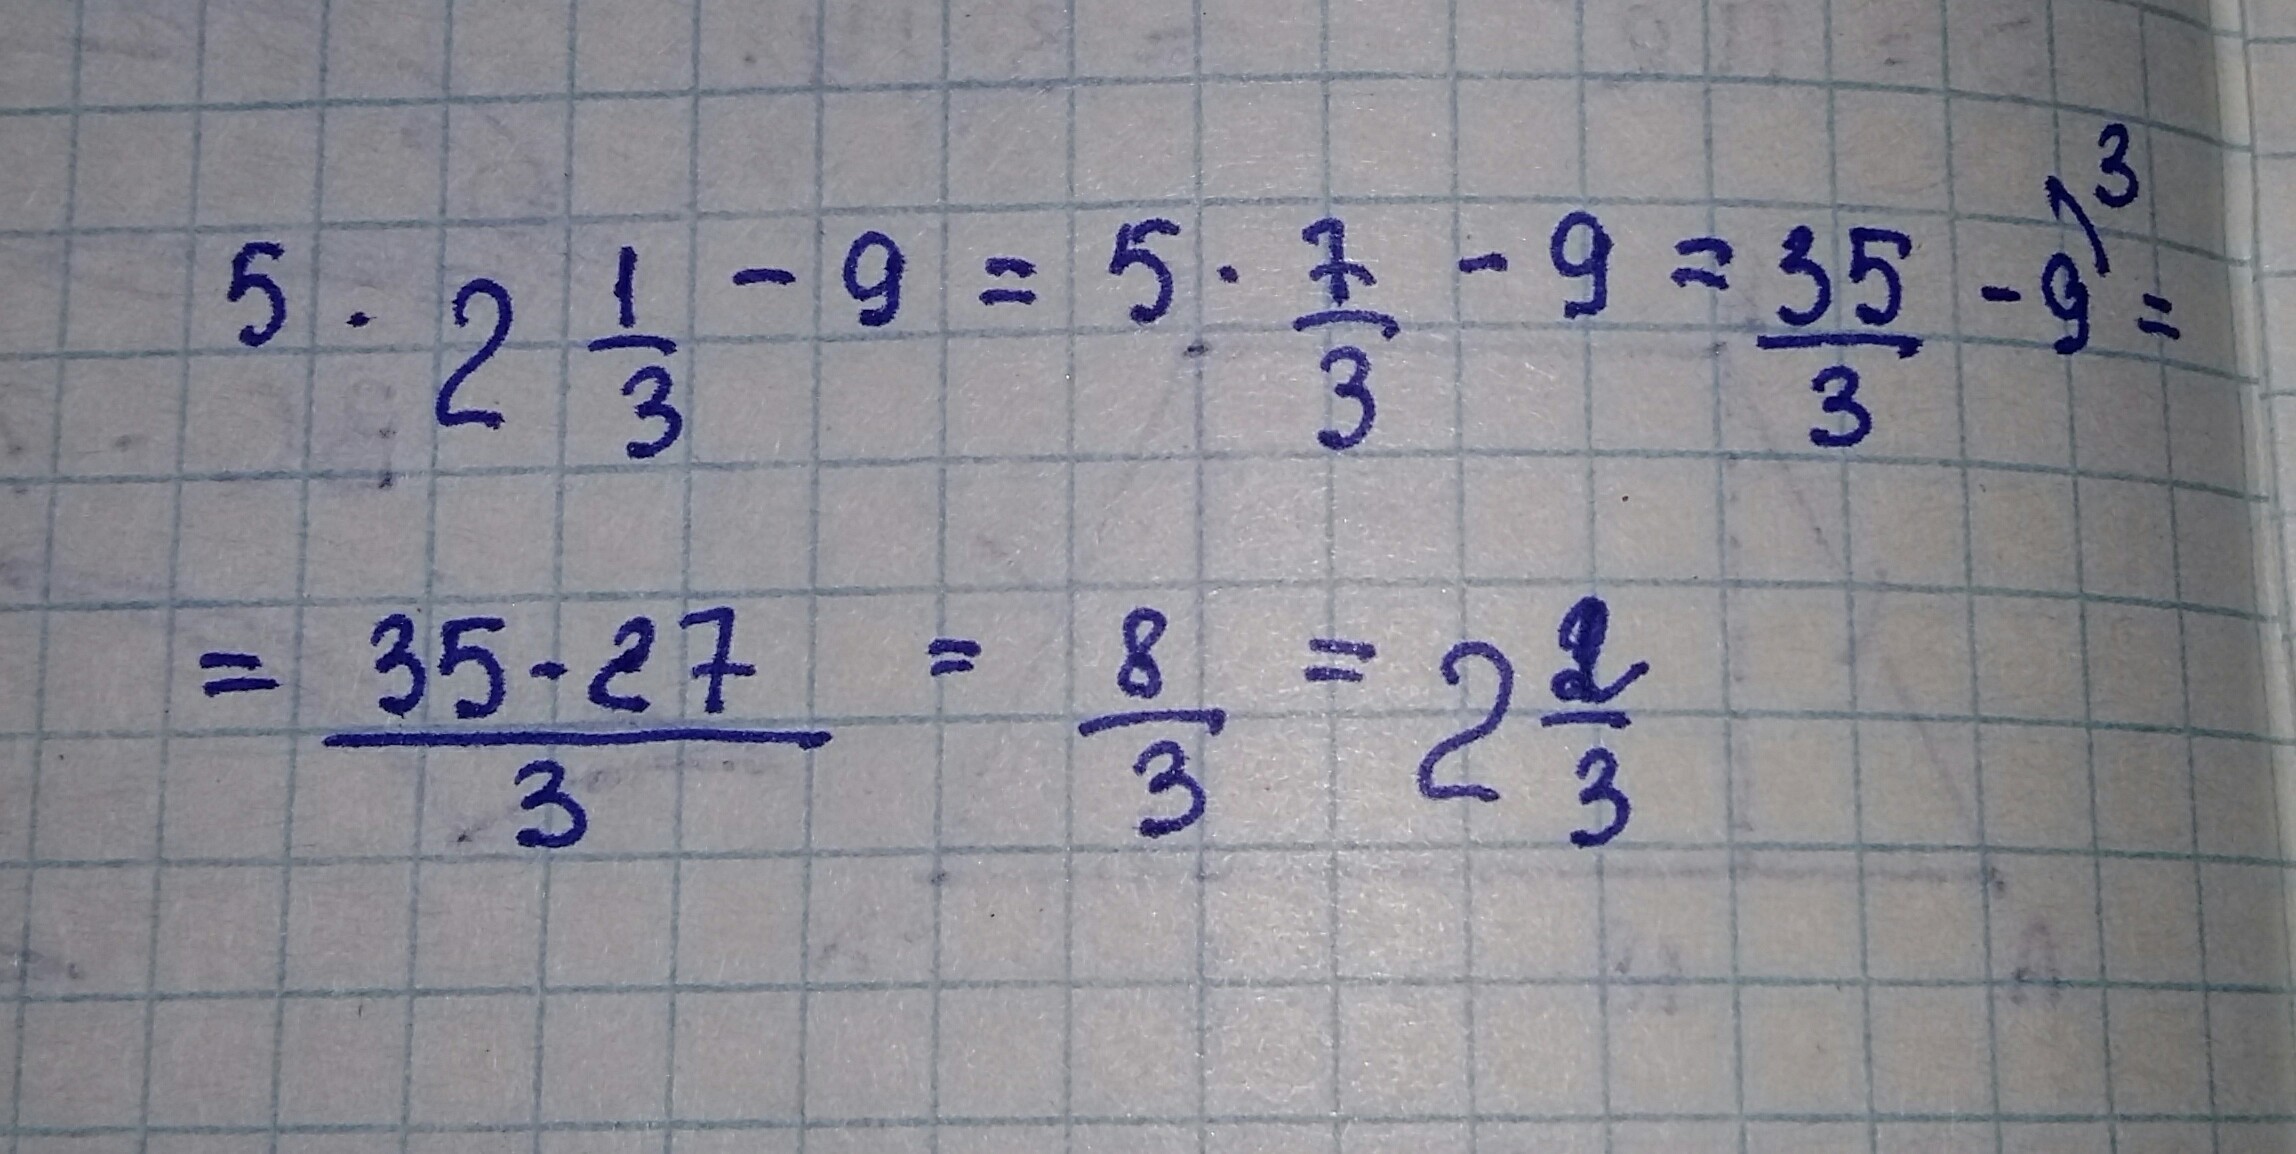 5 · 2 1/3 - 9 = 5 · 7/3 - 9 = 35/3 - 9^3 =
= (35 - 27)/3 = 8/3 = 2 2/3